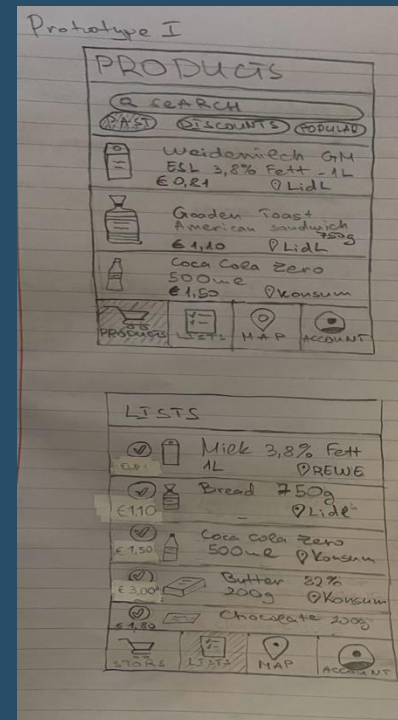 Prototype I
PRODUCTS
SEARCH
PAST DISCOUNTS POPULAR
Weidemilch GM
ESL 3,8% Fett - 1L
€ 0,81 Lidl
Gooden Toast
American Sandwich
750g
€ 1,10 Lidl
Coca Cola Zero
500ml
€ 1,50 Konsum
PRODUCTS LISTS MAP ACCOUNT
LISTS
Milk 3,8% Fett
1L REWE
Bread 750g
€1,10 Lidl
Coca Cola Zero
€ 1,50 500ml Konsum
Butter 82%
€ 3,00 200g Konsum
Chocolate 200g
€ 1,80
STORS LISTS MAP ACCOUNT